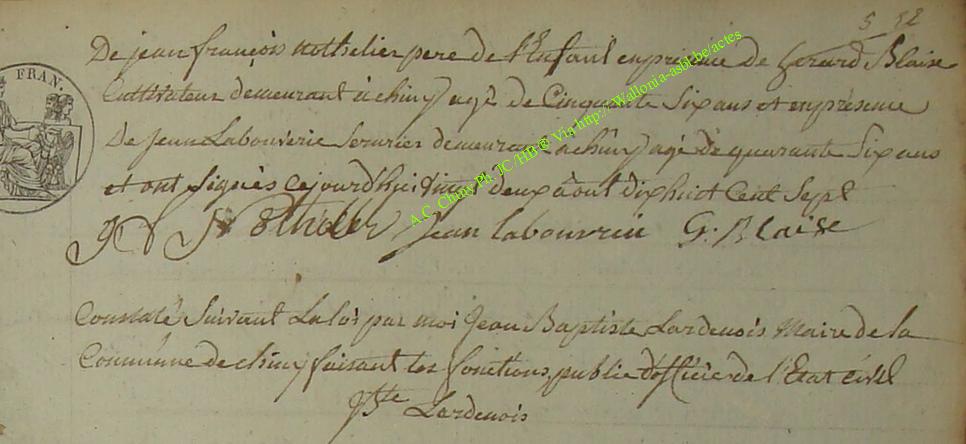 5 52
De jean françois nothelier pere de l'Enfant enpresence de Gerard Blaise
Cultivateur demeurant à chiny agé de Cinquante Six ans et enpresence
De jean Labouverie Serurier demeurant a chiny agé de quarante Six ans
et ont Signés cejourd'hui Vingt deux août dix huit Cent Sept
jean labouvrie G. Blaise
Constaté Suivant La loi par moi Jean Baptiste Lardenois Maire de la
Commune de chiny faisant les fonctions public d'officier de l'Etat civil
Jbte Lardenois
FRAN.
A.C. Chiny Ph. JC /HB @ Via http://Wallonia-asbl.be/actes